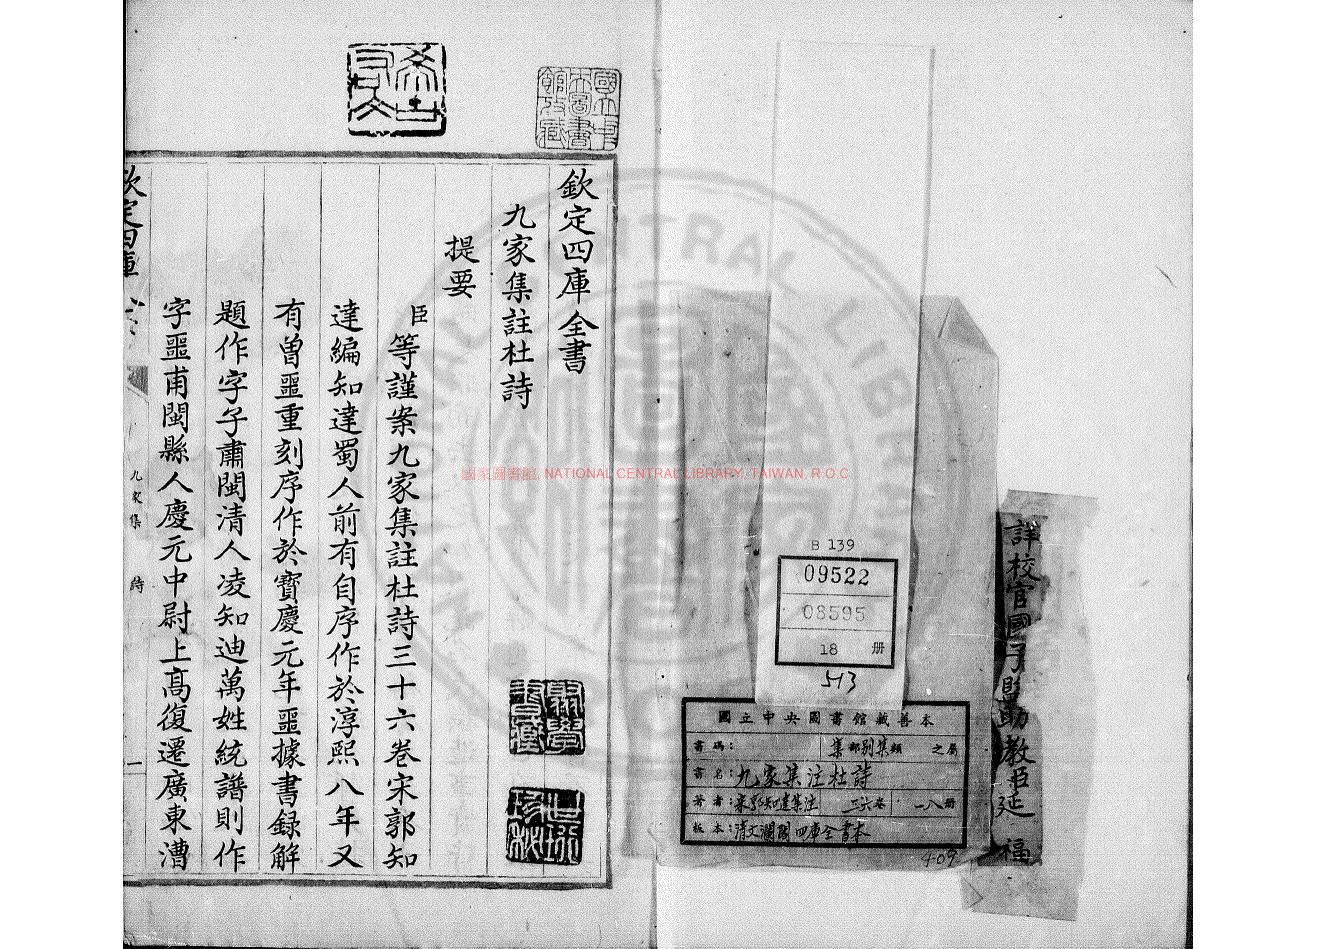 詳校官國子監助教臣延福
B 139
09522
08595
18 册
513
國立中央圖書館藏善本
書碼： 集部别集類 之屬
書名：九家集注杜詩
著者：宋郭知達集注 三六卷 一八册
板本：清文瀾閣四庫全書本
409
國家圖書館, NATIONAL CENTRAL LIBRARY, TAIWAN, R.O.C
欽定四庫全書
九家集註杜詩
提要
臣等謹案九家集註杜詩三十六卷宋郭知
達編知達蜀人前有自序作於淳熙八年又
有曾噩重刻序作於寶慶元年噩據書録解
題作字子肅閩清人凌知迪萬姓統譜則作
字噩甫閩縣人慶元中尉上高復遷廣東漕
欽定四庫
九家集 詩
一
國立中央圖書館收藏